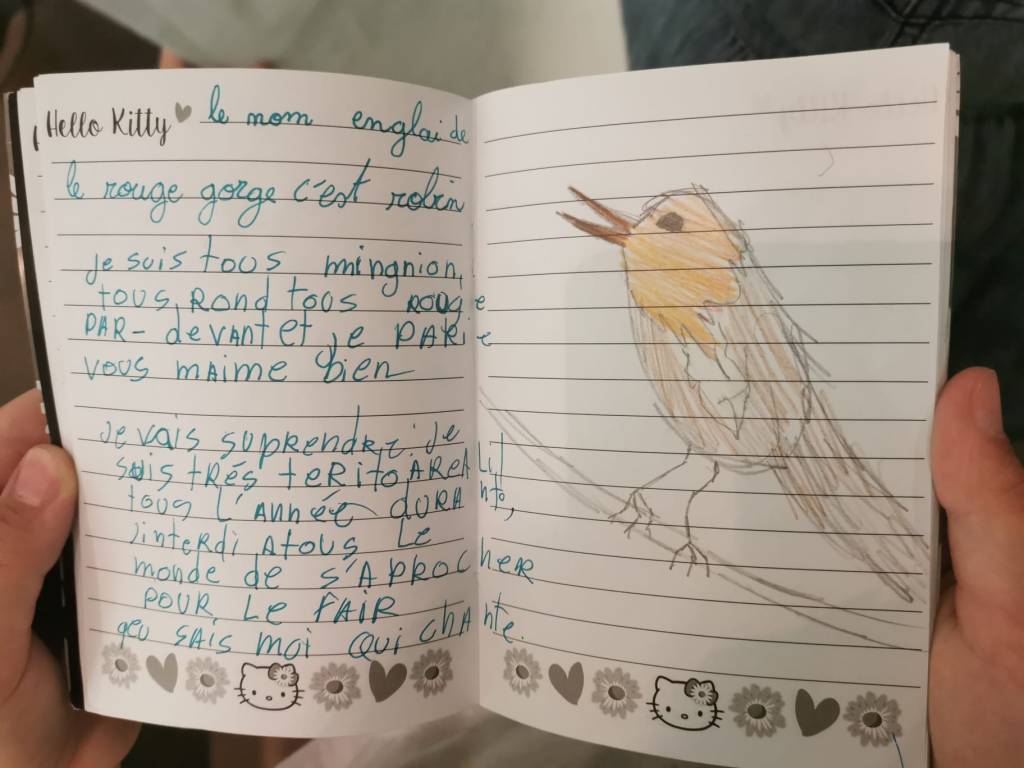 Hello Kitty le nom englai de
le rouge gorge c'est robin
je suis tous mingnion,
tous, ROND tous ROUGE
PAR-devANT et je PARie
vous mAime bien
je vais suprendre: je
suis tRés teRitoAReALit
tous l'ANNée duRANto,
j'interdi Atous Le
monde de s'APROCHeR
POUR Le FAIR
geu sAis moi qui chANte.